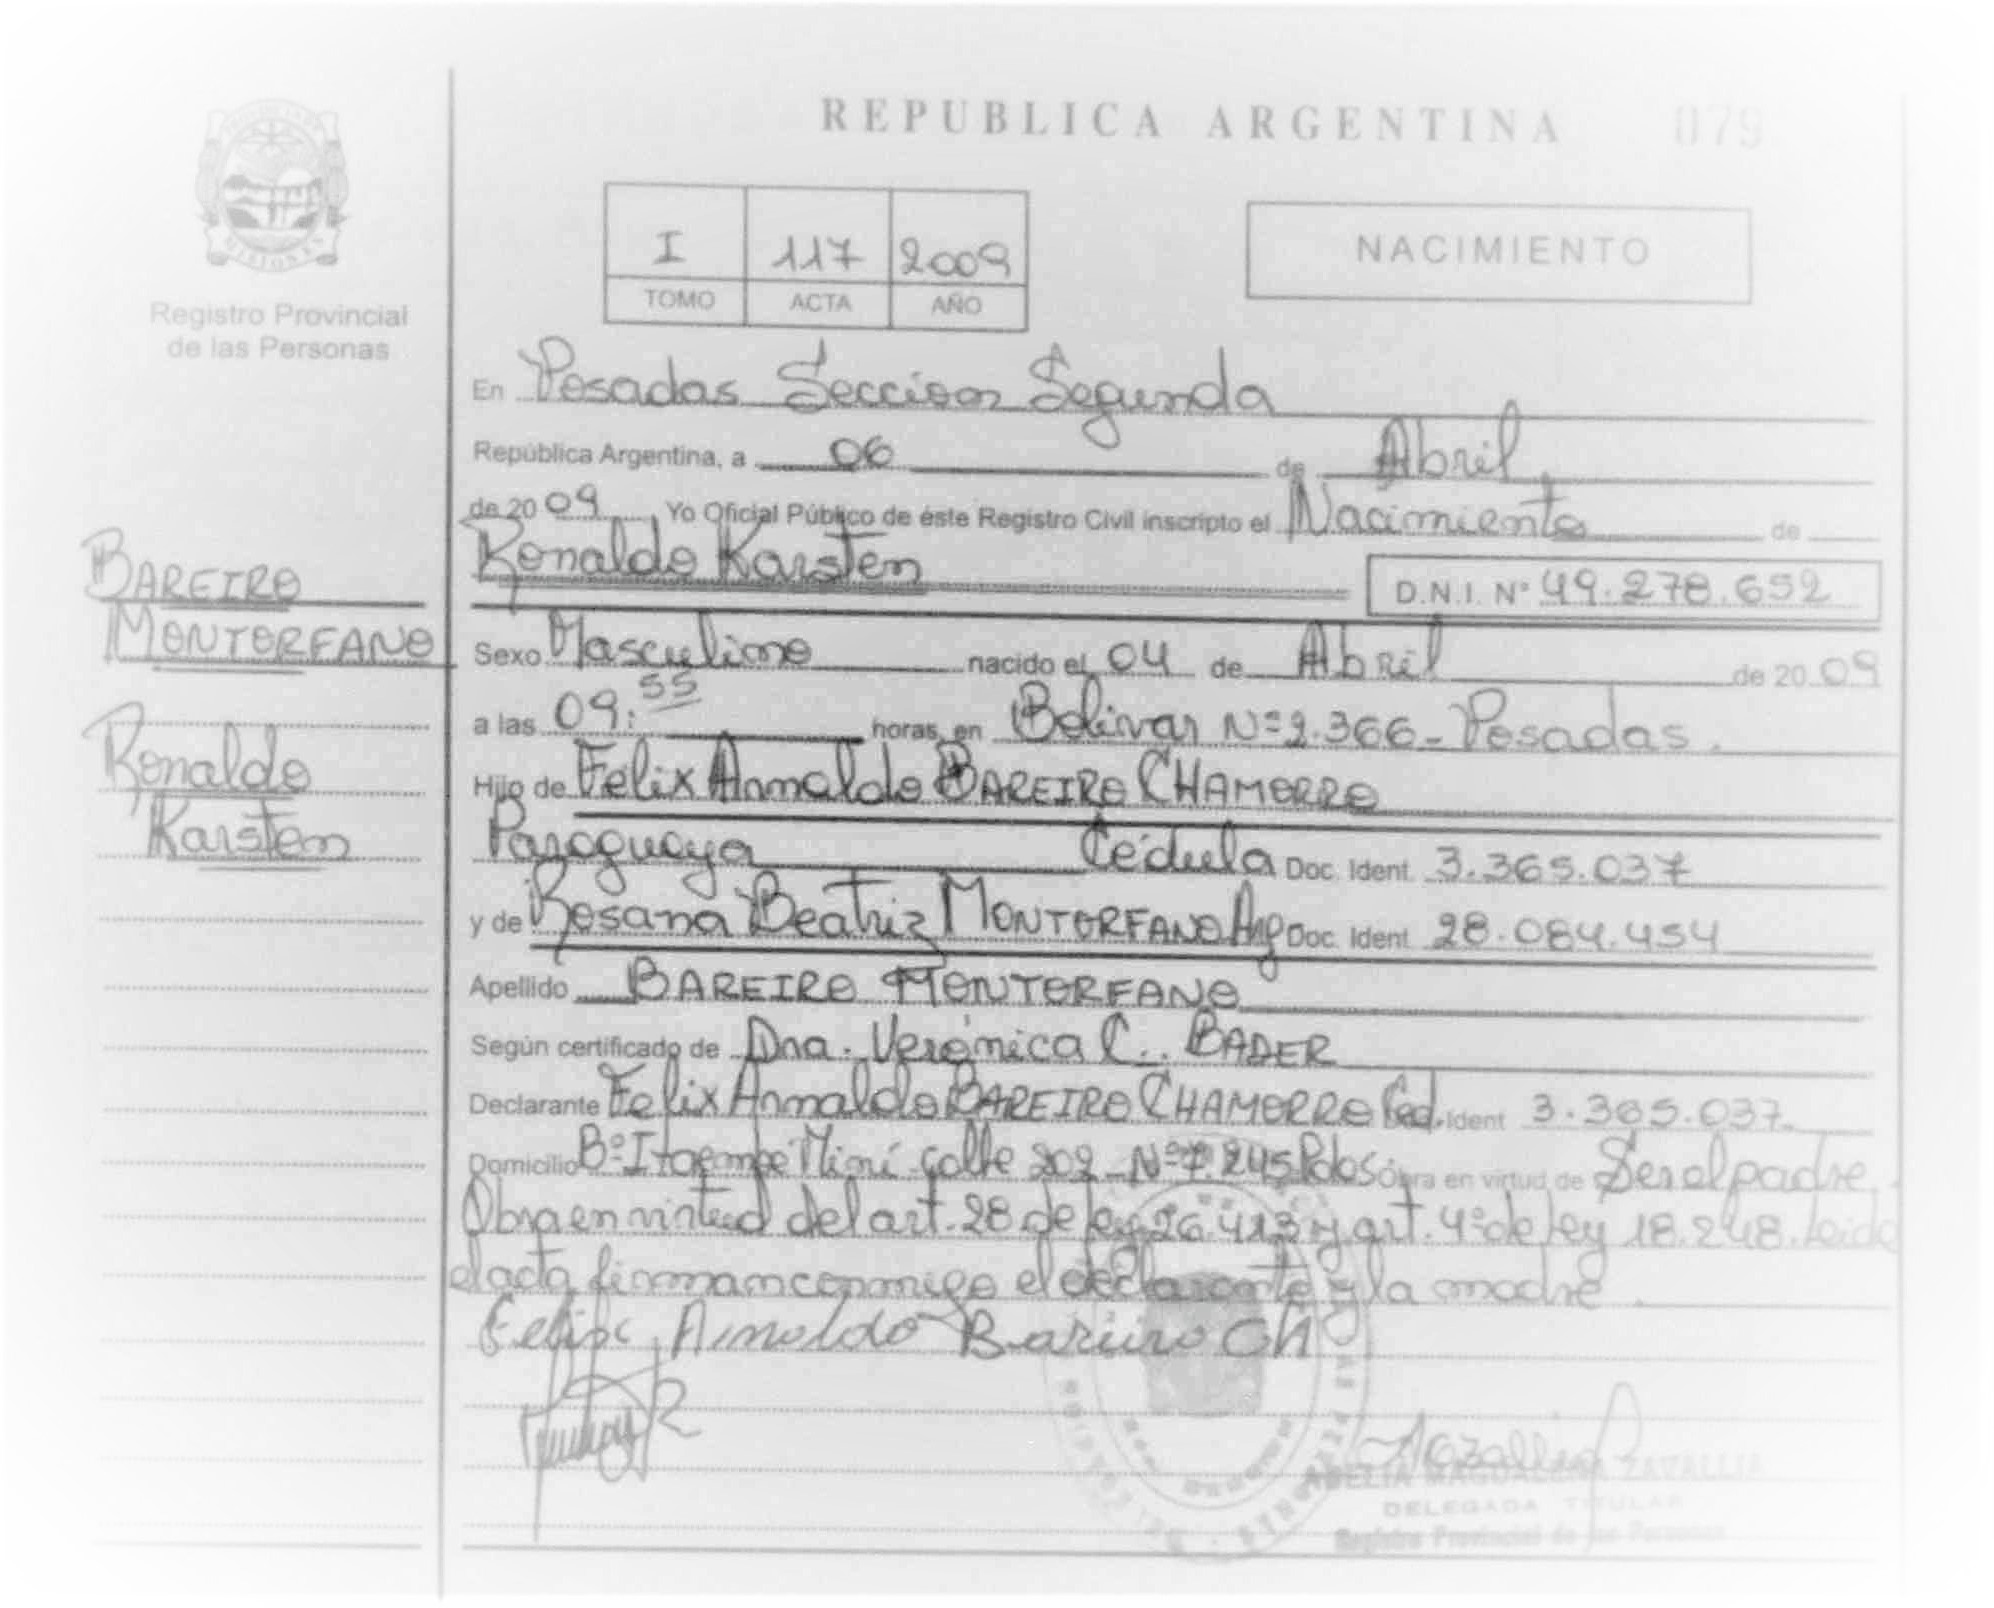 REPUBLICA ARGENTINA 079
MISIONES
Registro Provincial
de las Personas
I 117 2009
TOMO ACTA AÑO
NACIMIENTO
En Posadas Seccion Segunda
República Argentina, a 06 de Abril
de 2009 Yo Oficial Público de éste Registro Civil inscripto el Nacimiento de
Ronaldo Karsten D.N.I. Nº 49.278.652
BAREIRO
MONTORFANO
Ronaldo
Karsten
Sexo Masculino nacido el 04 de Abril de 2009
a las 09:55 horas, en Bolivar Nº 2.366 - Posadas.
Hijo de Felix Arnaldo BAREIRO CHAMORRO
Paraguaya Cédula Doc. Ident. 3.365.037
y de Rosana Beatriz MONTORFANO Arg Doc. Ident. 28.084.454
Apellido BAREIRO MONTORFANO
Según certificado de Dra. Verónica C. BADER
Declarante Felix Arnaldo BAREIRO CHAMORRO Ced. Ident 3.365.037.
Domicilio Bº Itaembe Miní - calle 202 - Nº 7.245 Pdas Obra en virtud de Ser el padre.
Obra en virtud del art. 28 de ley 26.413 y art. 4º de ley 18.248. Leida
el acta firman conmigo el declarante y la madre.
Felix Arnaldo Bareiro Ch
ADELIA MAGDALENA ZAVALLIA
DELEGADA TITULAR
Registro Provincial de las Personas